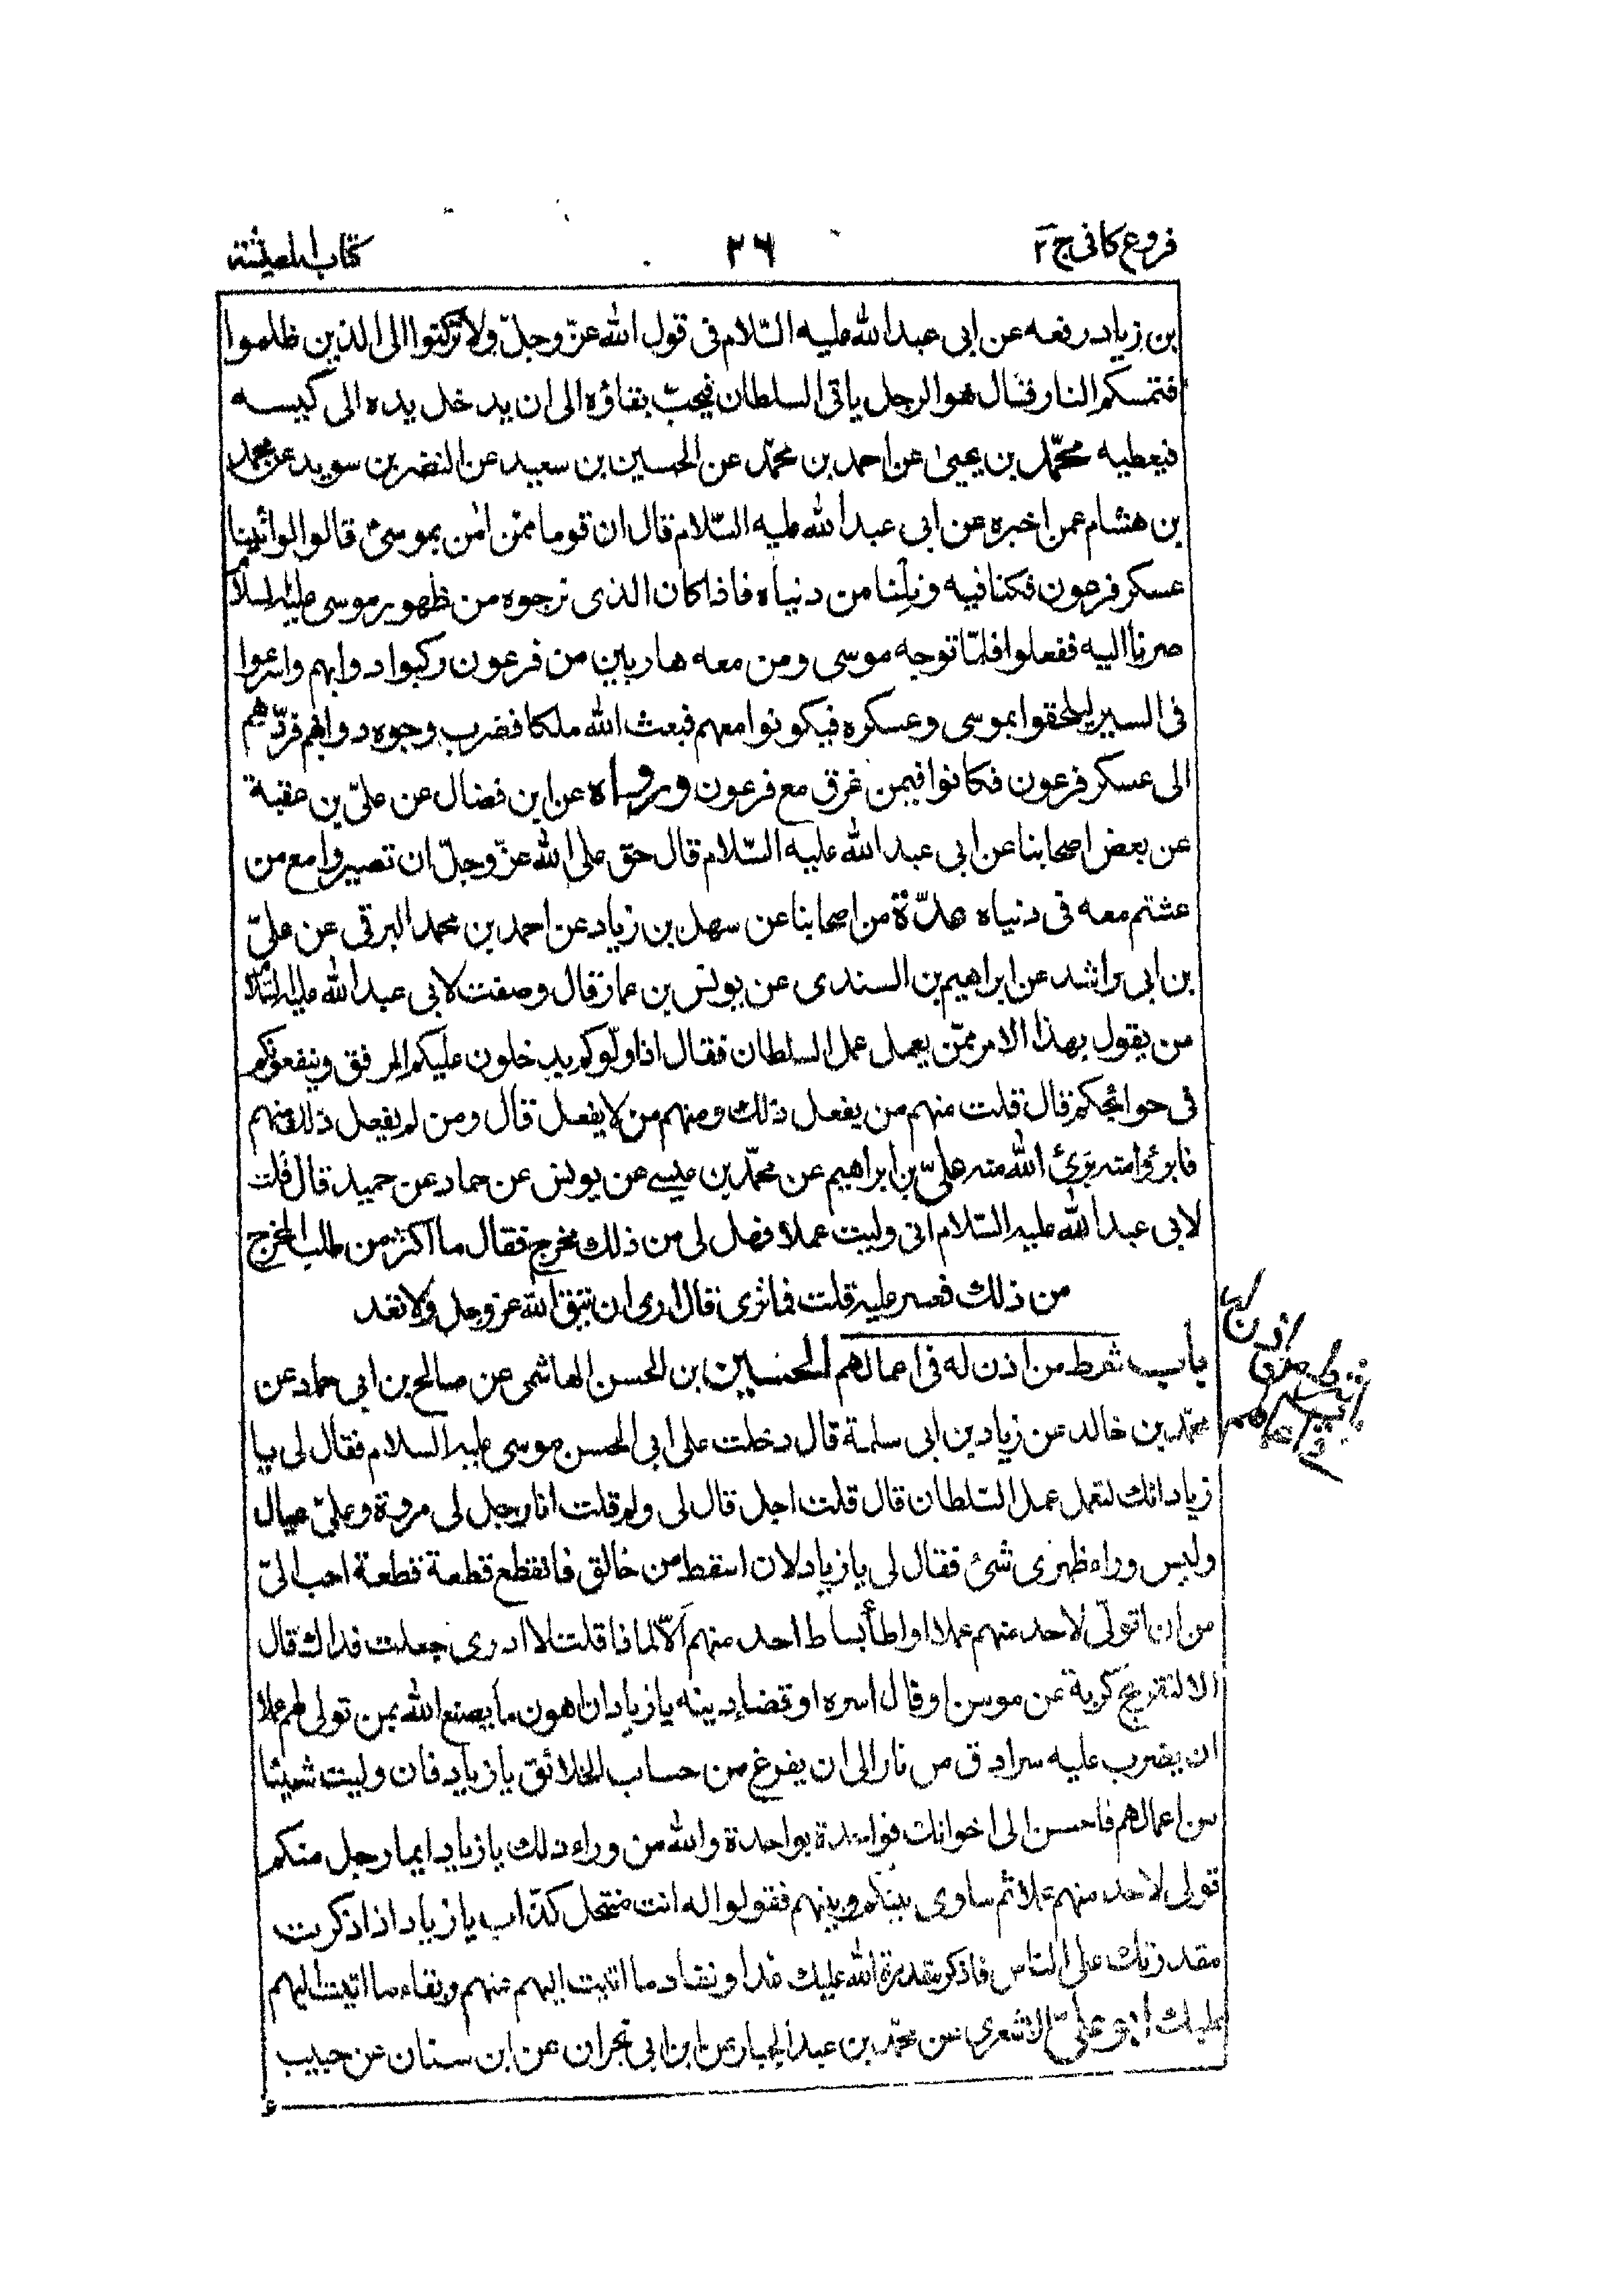 فروع كافى ج ٢
٣٦
كتاب المعيشة
بن زياد رفعه عن ابى عبد الله عليه السّلام فى قول الله عزّ وجلّ ولا تركنوا الى الذين ظلموا
فتمسكم النار فقال هو الرجل ياتى السلطان فيحبّ بقاؤه الى ان يدخل يده الى كيسه
فيعطيه محمّد بن يحيىٰ عن احمد بن محمّد عن الحسين بن سعيد عن النضر بن سويد عن محمد
بن هشام عمن اخبره عن ابى عبد الله عليه السّلام قال ان قوما ممّن اٰمن بموسىٰ قالوا لو اتينا
عسكر فرعون فكنا فيه ونلنا من دنياه فاذا كان الذى نرجوه من ظهور موسى عليه السلام
صرنا اليه ففعلوا فلمّا توجه موسى ومن معه هاربين من فرعون ركبوا دوابهم واسرعوا
فى السير ليلحقوا بموسى وعسكره فيكونوا معهم فبعث الله ملكا فضرب وجوه دوابهم فردّهم
الى عسكر فرعون فكانوا فيمن غرق مع فرعون ورواه عن ابن فضال عن علىّ بن عقبة
عن بعض اصحابنا عن ابى عبد الله عليه السّلام قال حق على الله عزّ وجلّ ان تصيروا مع من
عشتم معه فى دنياه عدّة من اصحابنا عن سهل بن زياد عن احمد بن محمد البرقى عن علىّ
بن ابى راشد عن ابراهيم بن السندى عن يونس بن عمار قال وصفت لابى عبد الله عليه السّلام
من يقول بهذا الامر ممّن يعمل عمل السلطان فقال اذا ولّوكم يدخلون عليكم المرفق وينفعونكم
فى حوائجكم قال قلت منهم من يفعل ذلك ومنهم من لا يفعل قال ومن لم يفعل ذلك منهم
فابرؤا منه برئ الله منه علىّ بن ابراهيم عن محمّد بن عيسى عن يونس عن حماد عن حميد قال قلت
لابى عبد الله عليه السّلام انى وليت عملا فهل لى من ذلك مخرج فقال ما اكثر من طلب المخرج
من ذلك فعسر عليه قلت فما ترى قال ارى ان تتقى الله عز وجل ولا تعد
باب شرط من اذن له فى اعمالهم الحسين بن الحسن الهاشمى عن صالح بن ابى حماد عن
محمّد بن خالد عن زياد بن ابى سلمة قال دخلت على ابى الحسن موسى عليه السلام فقال لى يا
زياد انك لتعمل عمل السّلطان قال قلت اجل قال لى ولم قلت انا رجل لى مروة وعلىّ عيال
وليس وراء ظهرى شئ فقال لى يا زياد لان اسقط من حالق فاتقطع قطعة قطعة احب الىّ
من ان اتولّى لاحد منهم عملا او اطأ بساط احد منهم الّا لماذا قلت لا ادرى جعلت فداك قال
الا لتفريج كربة عن مومن او فك اسره او قضاء دينه يا زياد ان اهون ما يصنع الله بمن تولى لهم عملا
ان يضرب عليه سرادق من نار الى ان يفرغ من حساب الخلائق يا زياد فان وليت شيئا
من اعمالهم فاحسن الى اخوانك فواحدة بواحدة والله من وراء ذلك يا زياد ايما رجل منكم
تولى لاحد منهم عملا ثم ساوى بينكم وبينهم فقولوا له انت منتحل كذّاب يا زياد اذا ذكرت
مقدرتك على النّاس فاذكر مقدرة الله عليك غدا ونفاد ما اتيت اليهم عنهم وبقاء ما اتيت اليهم
عليك ابو علىّ الاشعرى عن محمّد بن عبد الجبار عن ابن ابى نجران عن ابن سنان عن حبيب